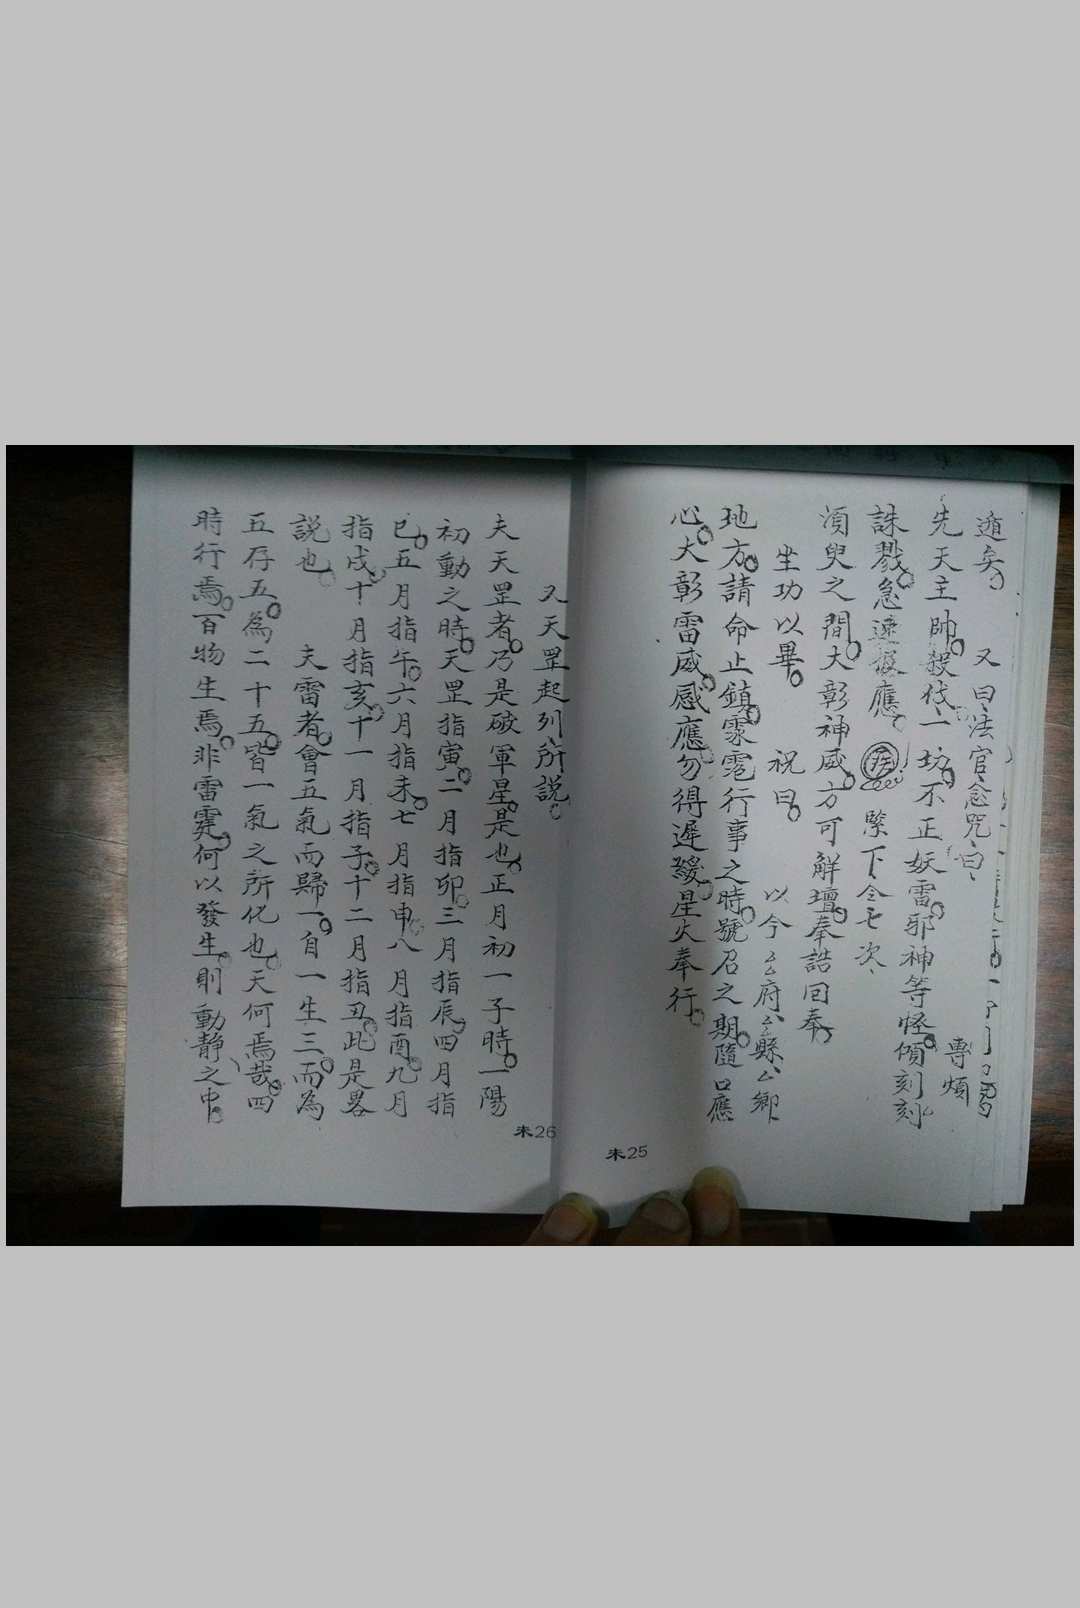 遁矣。　又曰、法官念咒曰、
專煩
先天主帥。殺伐一坊。不正妖雷。邪神等怪。傾刻刻
誅戮。急速報應。　緊下仝七次、
須臾之間。大彰神威。方可解壇。奉誥回奉。
坐功以畢。　祝曰。　以今厶府厶縣厶鄉
地方。請命止鎮。霡霓行事之時。號召之期。隨口應
心。大彰雷威。感應。勿得遲緩。星火奉行。
未25
又天罡起列所説。
夫天罡者。乃是破軍星。是也。正月初一子時。一陽
初動之時。天罡指寅。二月指卯。三月指辰。四月指
巳。五月指午。六月指未。七月指申。八月指酉。九月
指戌。十月指亥。十一月指子。十二月指丑。此是畧
説也。　夫雷者。會五氣而歸一。自一生三。而為
五存五。為二十五。皆一氣之所化也。天何焉哉。四
時行焉。百物生焉。非雷霆。何以發生。則動靜、之中。
未26